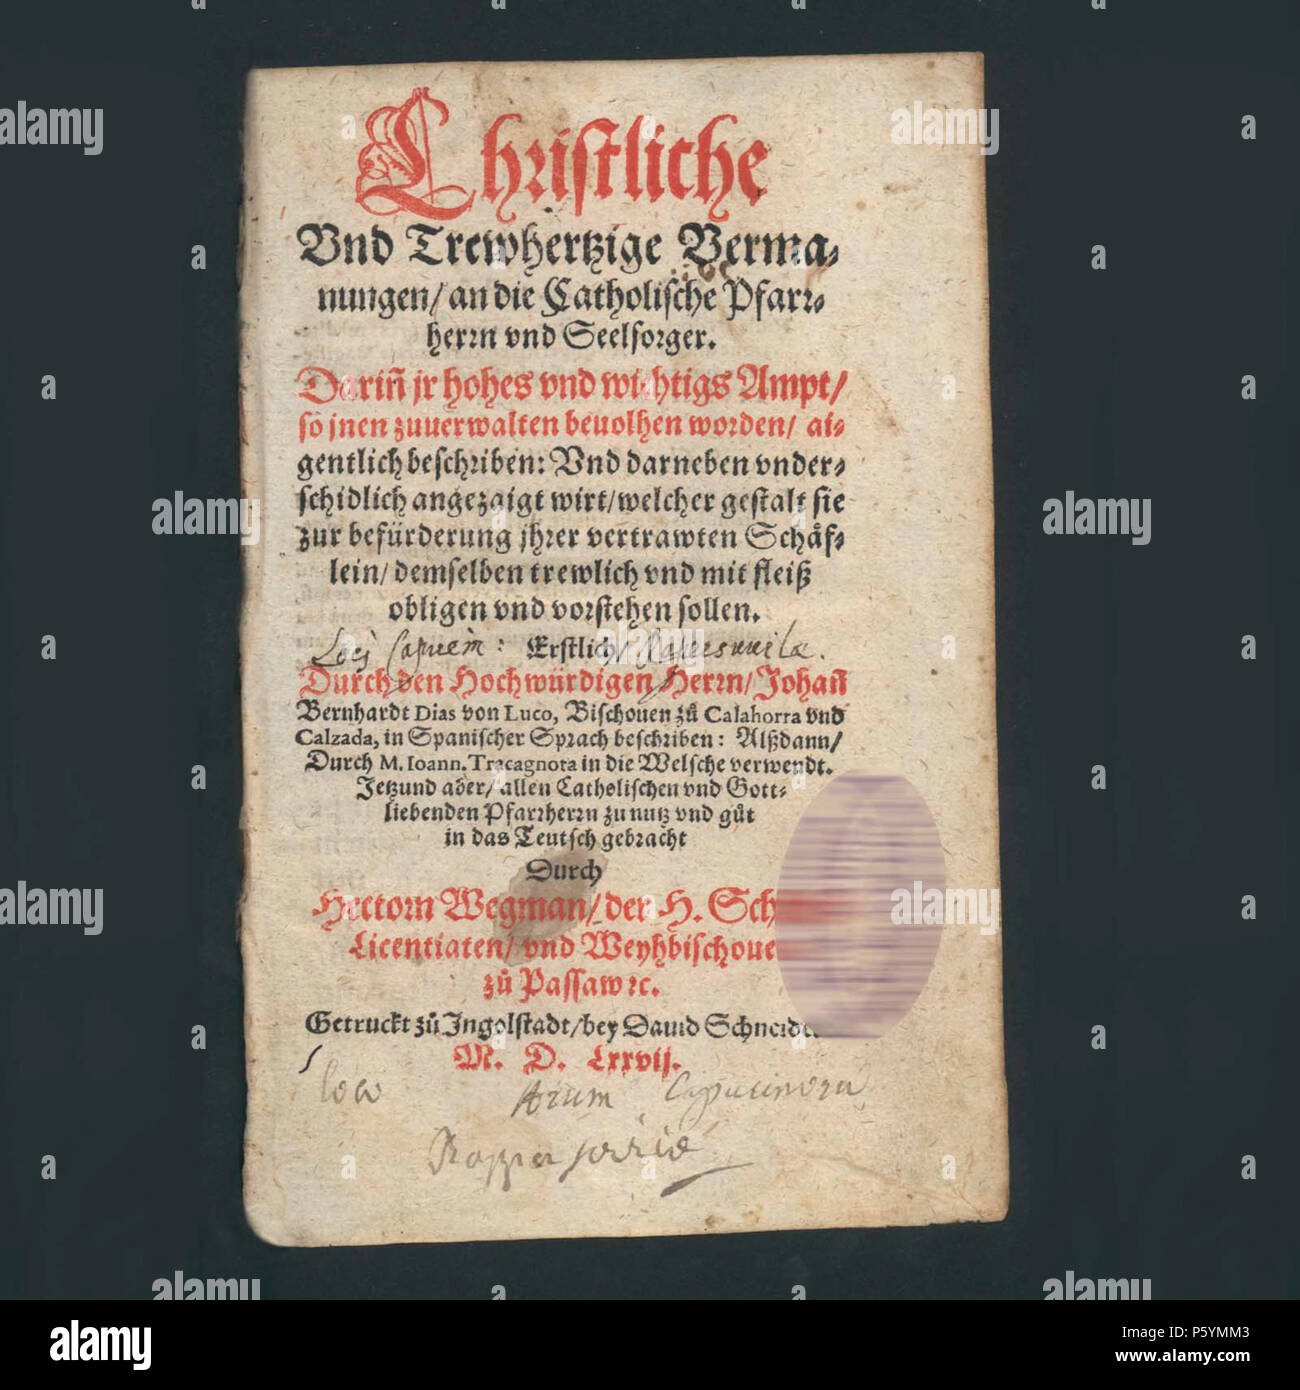 Christliche
Vnd Trewhertzige Verma⸗
nungen/ an die Catholische Pfarr⸗
herrn vnd Seelsorger.
Dariñ jr hohes vnd wichtigs Ampt/
so jnen zuuerwalten beuolhen worden/ ai⸗
gentlich beschriben: Vnd darneben vnder⸗
schidlich angezaigt wirt/ welcher gestalt sie
zur befürderung jhrer vertrawten Schäf⸗
lein/ demselben trewlich vnd mit fleiß
obligen vnd vorstehen sollen.
Loci Erstlich/
Durch den Hochwürdigen Herrn/ Johañ
Bernhardt Dias von Luco, Bischouen zů Calahorra vnd
Calzada, in Spanischer Sprach beschriben: Alßdann/
Durch M. Ioann. Tracagnota in die Welsche verwendt.
Jetzund aber/ allen Catholischen vnd Gott⸗
liebenden Pfarrherrn zu nutz vnd gůt
in das Teutsch gebracht
Durch
Hectorn Wegman/ der H. Sch
Licentiaten/ vnd Weyhbischoue
zů Passaw ꝛc.
Getruckt zů Jngolstadt/ bey Dauid Schneide
M. D. Lxxvij.
loco Capucinoru
alamy
P5YMM3
www.alamy.com